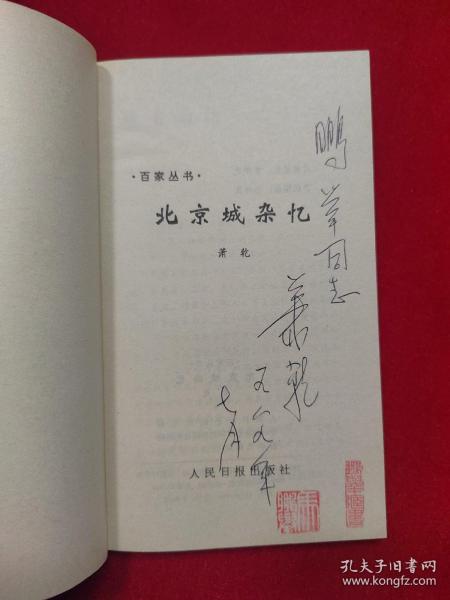 ·百家丛书·
北京城杂忆
萧乾
鹏举同志
萧乾
七月
人民日报出版社
孔夫子旧书网
www.kongfz.com